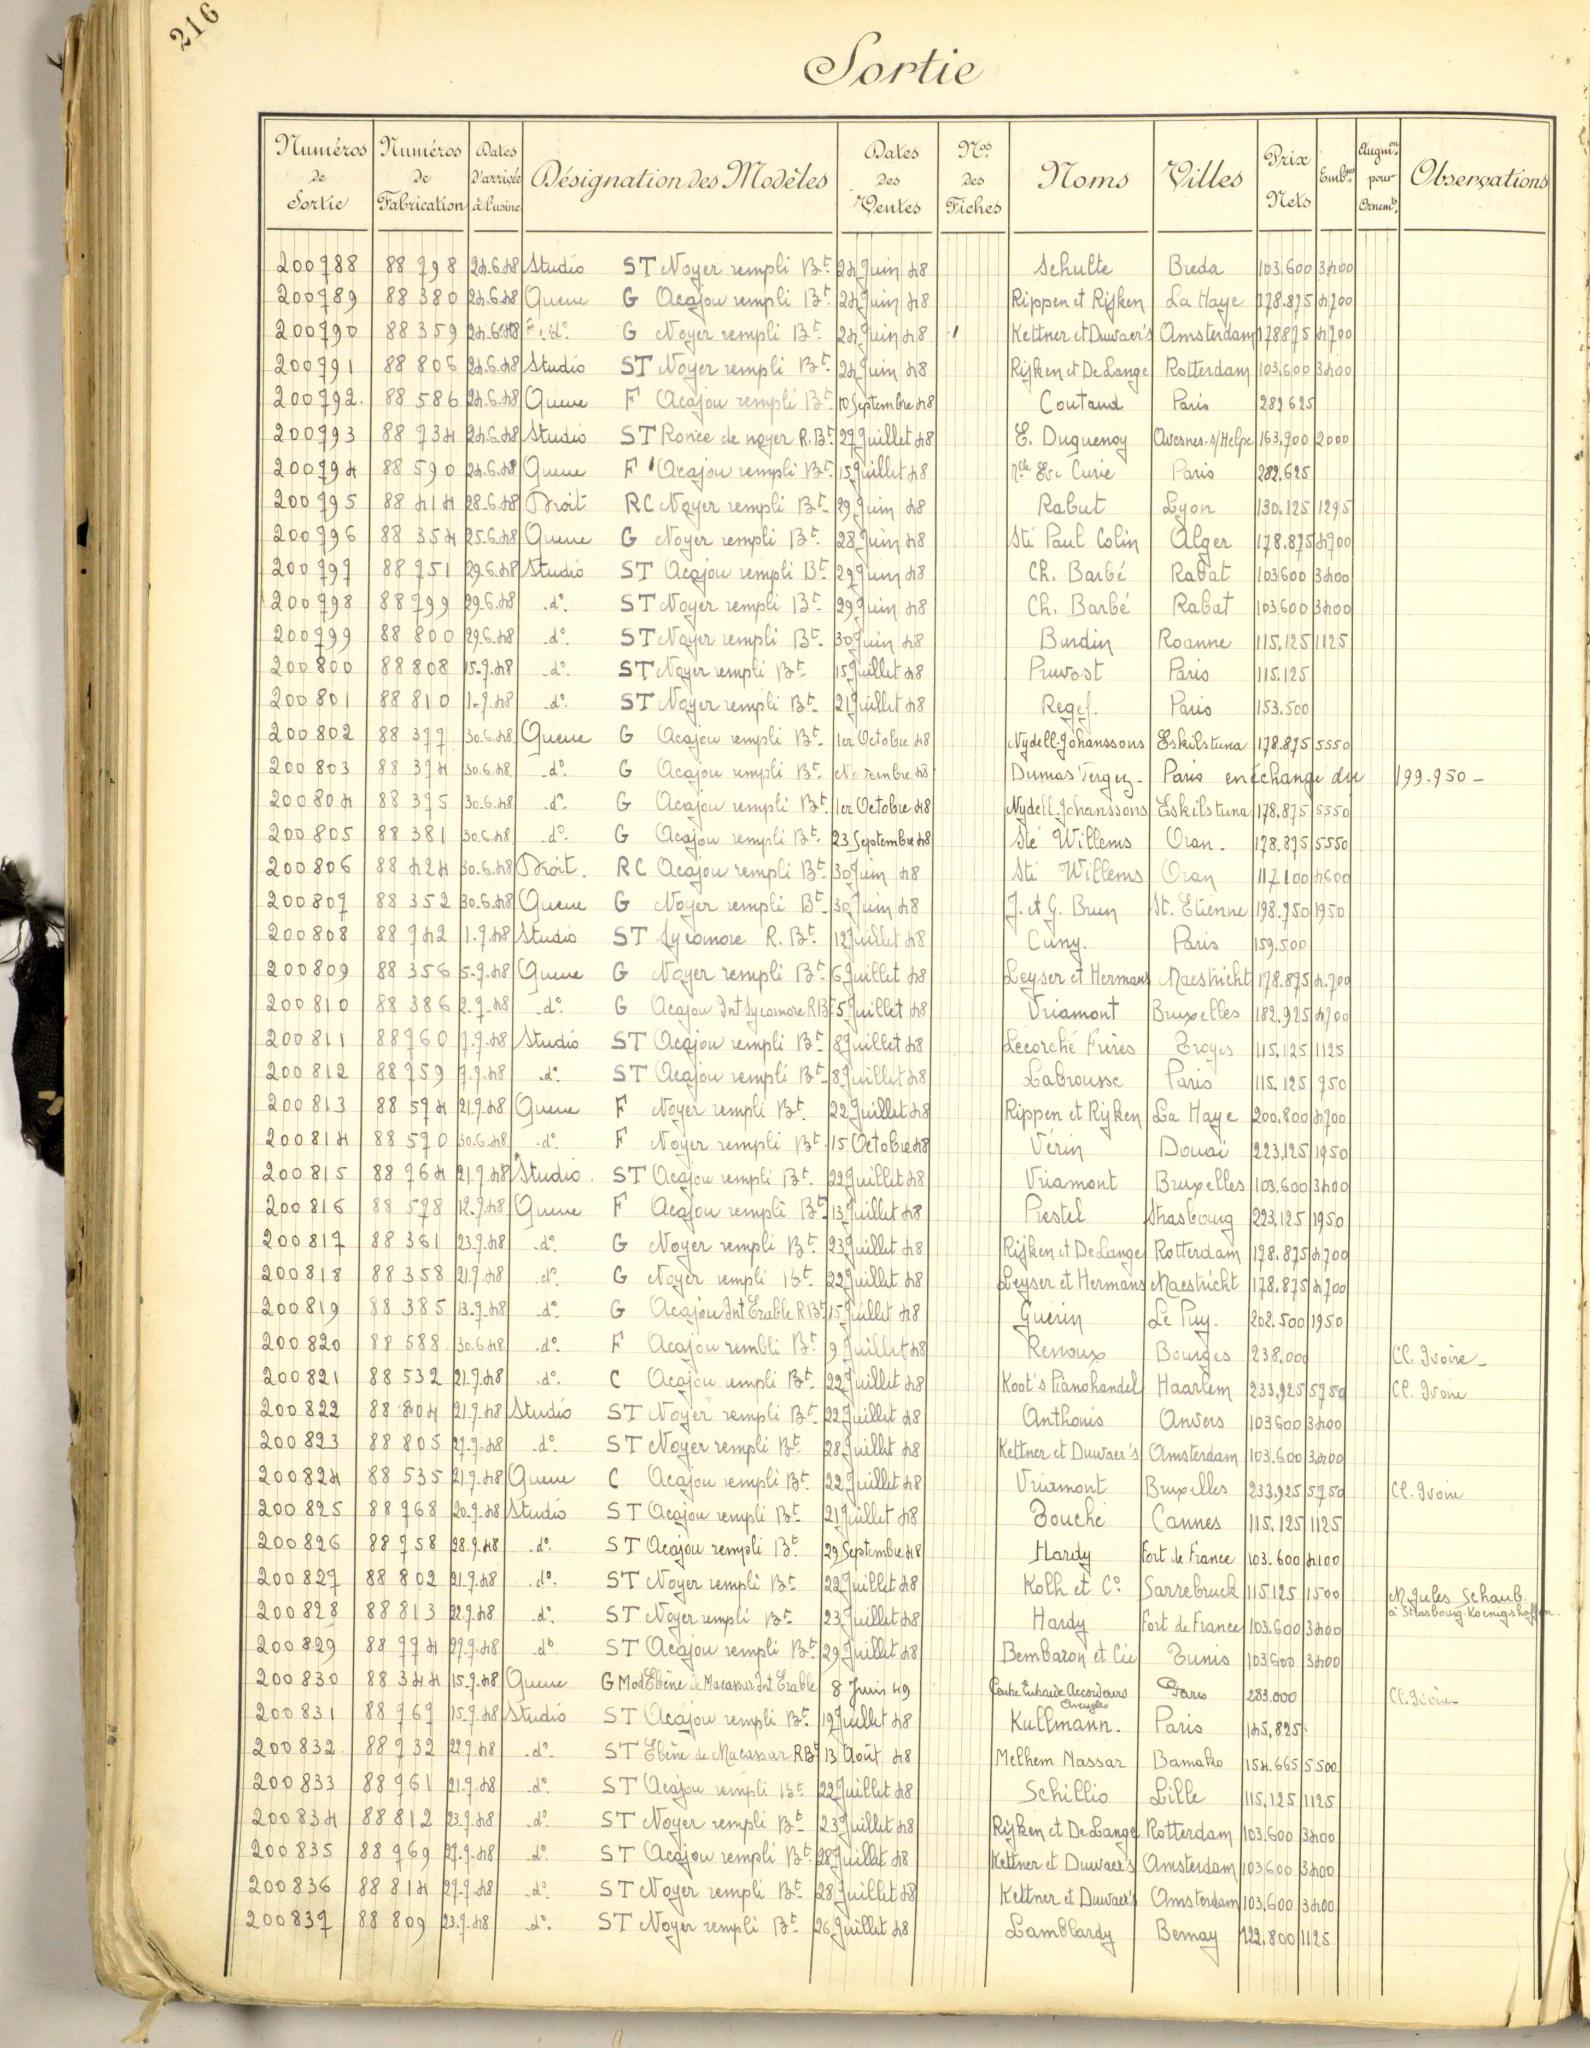 216
Sortie
Numéros de Sortie | Numéros de Fabrication | Dates d'arrivée à l'usine | Désignation des Modèles | Dates des Ventes | Nos des Fiches | Noms | Villes | Prix Nets | Embges | Augmon pour Ornemts | Observations
200788 88798 24.6.48 Studio ST Noyer rempli Bt 24 Juin 48 Schulte Breda 103.600 3400
200789 88380 24.6.48 Queue G Acajou rempli Bt 24 Juin 48 Rippen et Rijken La Haye 178.875 4700
200790 88359 24.6.48 do G Noyer rempli Bt 24 Juin 48 Kettner et Duwaer's Amsterdam 178875 4700
200791 88806 24.6.48 Studio ST Noyer rempli Bt 24 Juin 48 Rijken et De Lange Rotterdam 103.600 3400
200792. 88586 24.6.48 Queue F Acajou rempli Bt 10 Septembre 48 Coutaud Paris 282625
200793 88734 24.6.48 Studio ST Ronce de noyer R. Bt 27 Juillet 48 E. Duquenoy Avesnes-s/Helpe 163.700 2000
200794 88590 24.6.48 Queue F Acajou rempli Bt 15 Juillet 48 Mlle Eve Curie Paris 282.625
200795 88414 28.6.48 Droit RC Noyer rempli Bt 29 Juin 48 Rabut Lyon 130.125 1295
200796 88354 25.6.48 Queue G Noyer rempli Bt 28 Juin 48 Sté Paul Colin Alger 178.875 4700
200797 88751 29.6.48 Studio ST Acajou rempli Bt 29 Juin 48 Ch. Barbé Rabat 103600 3400
200798 88799 29.6.48 do ST Noyer rempli Bt 29 Juin 48 Ch. Barbé Rabat 103600 3400
200799 88800 29.6.48 do ST Noyer rempli Bt 30 Juin 48 Burdin Roanne 115.125 1125
200800 88808 15.7.48 do ST Noyer rempli Bt 15 Juillet 48 Pruvost Paris 115.125
200801 88810 1.7.48 do ST Noyer rempli Bt 21 Juillet 48 Regef. Paris 153.500
200802 88377 30.6.48 Queue G Acajou rempli Bt 1er Octobre 48 Nydell-Johanssons Eskilstuna 178.875 5550
200803 88374 30.6.48 do G Acajou rempli Bt Novembre 48 Dumas Vergez Paris en échange du 199.750
200804 88375 30.6.48 do G Acajou rempli Bt 1er Octobre 48 Nydell-Johanssons Eskilstuna 178.875 5550
200805 88381 30.6.48 do G Acajou rempli Bt 23 Septembre 48 Sté Willems Oran. 178.875 5550
200806 88424 30.6.48 Droit. RC Acajou rempli Bt 30 Juin 48 Sté Willems Oran 117.100 4600
200807 88352 30.6.48 Queue G Noyer rempli Bt 30 Juin 48 J. et G. Brun St. Etienne 198.750 1950
200808 88742 1.7.48 Studio ST Sycomore R. Bt 12 Juillet 48 Cuny. Paris 159.500
200809 88356 5.7.48 Queue G Noyer rempli Bt 6 Juillet 48 Leyser et Hermans Maestricht 178.875 4.700
200810 88386 2.7.48 do G Acajou Int Sycomore R Bt 5 Juillet 48 Vriamont Bruxelles 182.925 4700
200811 88760 7.7.48 Studio ST Acajou rempli Bt 8 Juillet 48 Lecorché Frères Troyes 115.125 1125
200812 88759 7.7.48 do ST Acajou rempli Bt 8 Juillet 48 Labrousse Paris 115.125 750
200813 88574 21.7.48 Queue F Noyer rempli Bt 22 Juillet 48 Rippen et Rijken La Haye 200.800 4700
200814 88570 30.6.48 do F Noyer rempli Bt 15 Octobre 48 Verin Douai 223.125 1950
200815 88764 21.7.48 Studio. ST Acajou rempli Bt 22 Juillet 48 Vriamont Bruxelles 103.600 3400
200816 88578 12.7.48 Queue F Acajou rempli Bt 13 Juillet 48 Prestel Strasbourg 223.125 1950
200817 88361 23.7.48 do G Noyer rempli Bt 23 Juillet 48 Rijken et De Lange Rotterdam 178.875 4700
200818 88358 21.7.48 do G Noyer rempli Bt 22 Juillet 48 Leyser et Hermans Maestricht 178.875 4700
200819 88385 13.7.48 do G Acajou Int Erable R Bt 15 Juillet 48 Guérin Le Puy. 202.500 1950
200820 88588 30.6.48 do F Acajou rembli Bt 9 Juillet 48 Renoux Bourges 238.000 Cl. Ivoire
200821 88532 21.7.48 do C Acajou rempli Bt 22 Juillet 48 Koot's Pianohandel Haarlem 233.925 5750 Cl. Ivoire
200822 88804 21.7.48 Studio ST Noyer rempli Bt 22 Juillet 48 Anthonis Anvers 103600 3400
200823 88805 27.7.48 do ST Noyer rempli Bt 28 Juillet 48 Kettner et Duwaer's Amsterdam 103.600 3400
200824 88535 21.7.48 Queue C Acajou rempli Bt 22 Juillet 48 Vriamont Bruxelles 233.925 5750 Cl. Ivoire
200825 88768 20.7.48 Studio ST Acajou rempli Bt 21 Juillet 48 Bouche Cannes 115.125 1125
200826 88758 28.7.48 do ST Acajou rempli Bt 29 Septembre 48 Hardy Fort de France 103.600 4100
200827 88802 21.7.48 do ST Noyer rempli Bt 22 Juillet 48 Kolh et Co Sarrebruck 115125 1500 M. Jules Schaub à Strasbourg-Koenigshoffen
200828 88813 22.7.48 do ST Noyer rempli Bt 23 Juillet 48 Hardy Fort de France 103.600 3400
200829 88774 27.7.48 do ST Acajou rempli Bt 29 Juillet 48 Bembaron et Cie Tunis 103600 3400
200830 88344 15.7.48 Queue G Mod Ebène de Macassar Int Erable 8 Juin 49 Accordeurs Aveugles Paris 283.000 Cl. Ivoire
200831 88767 15.7.48 Studio ST Acajou rempli Bt 19 Juillet 48 Kullmann. Paris 145.825
200832 88732 22.7.48 do ST Ebène de Macassar R Bt 13 Août 48 Melhem Nassar Bamako 154.665 5500
200833 88761 21.7.48 do ST Acajou rempli Bt 22 Juillet 48 Schillio Lille 115.125 1125
200834 88812 23.7.48 do ST Noyer rempli Bt 23 Juillet 48 Rijken et De Lange Rotterdam 103.600 3400
200835 88769 27.7.48 do ST Acajou rempli Bt 28 Juillet 48 Kettner et Duwaer's Amsterdam 103.600 3400
200836 88814 27.7.48 do ST Noyer rempli Bt 28 Juillet 48 Kettner et Duwaer's Amsterdam 103.600 3400
200837 88809 23.7.48 do ST Noyer rempli Bt 26 Juillet 48 Lamblardy Bernay 122.800 1125